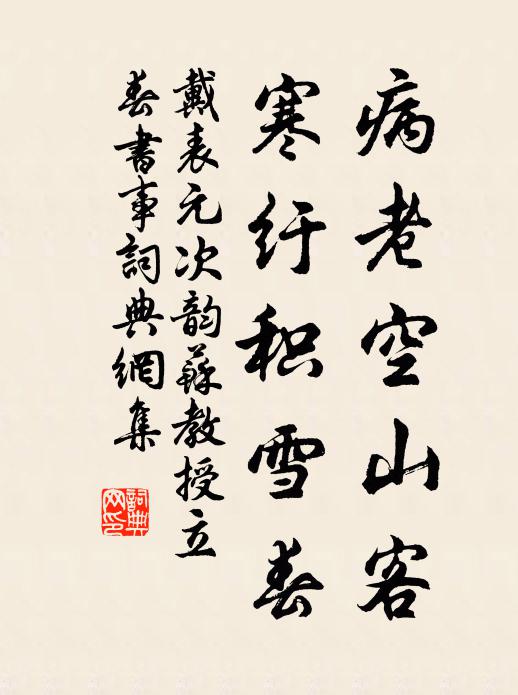 病老空山客
寒纡积雪春
戴表元次韵苏教授立
春书事词典网集
词典
网印